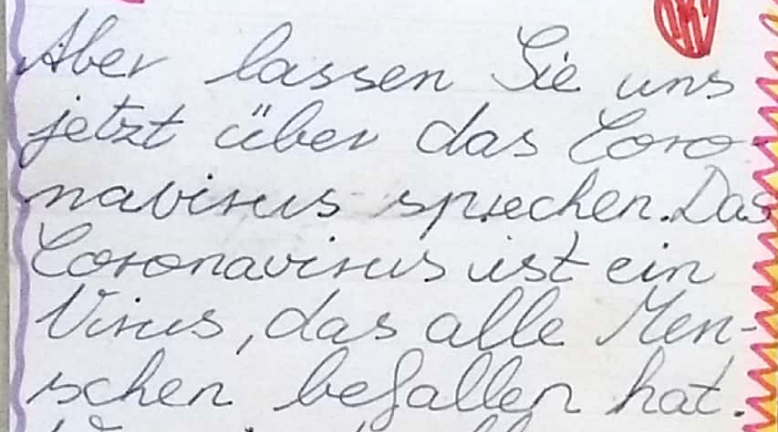 Aber lassen Sie uns
jetzt über das Coro-
navirus sprechen. Das
Coronavirus ist ein
Virus, das alle Men-
schen befallen hat.